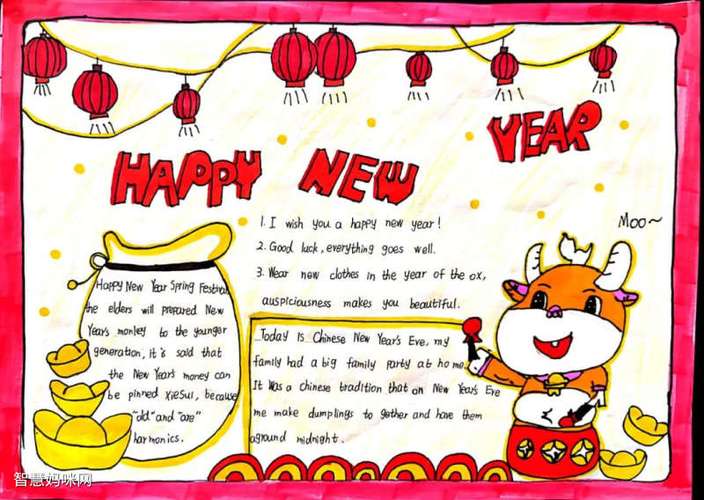 HAPPY NEW YEAR
Moo~
1. I wish you a happy new year!
2. Good luck, everything goes well.
3. Wear new clothes in the year of the ox,
auspiciousness makes you beautiful.
Happy New Year Spring Festival
the elders will prepared New
Year's monley to the younger
generation, it is said that
the New Year's money can
be pinned XieSui, because
"old" and "are"
harmonics.
Today is Chinese New Year's Eve, my
family had a big family party at home
It Was a chinese tradition that on New Year's Eve
me make dumplings to gether and have them
aground midnight.
智慧妈咪网